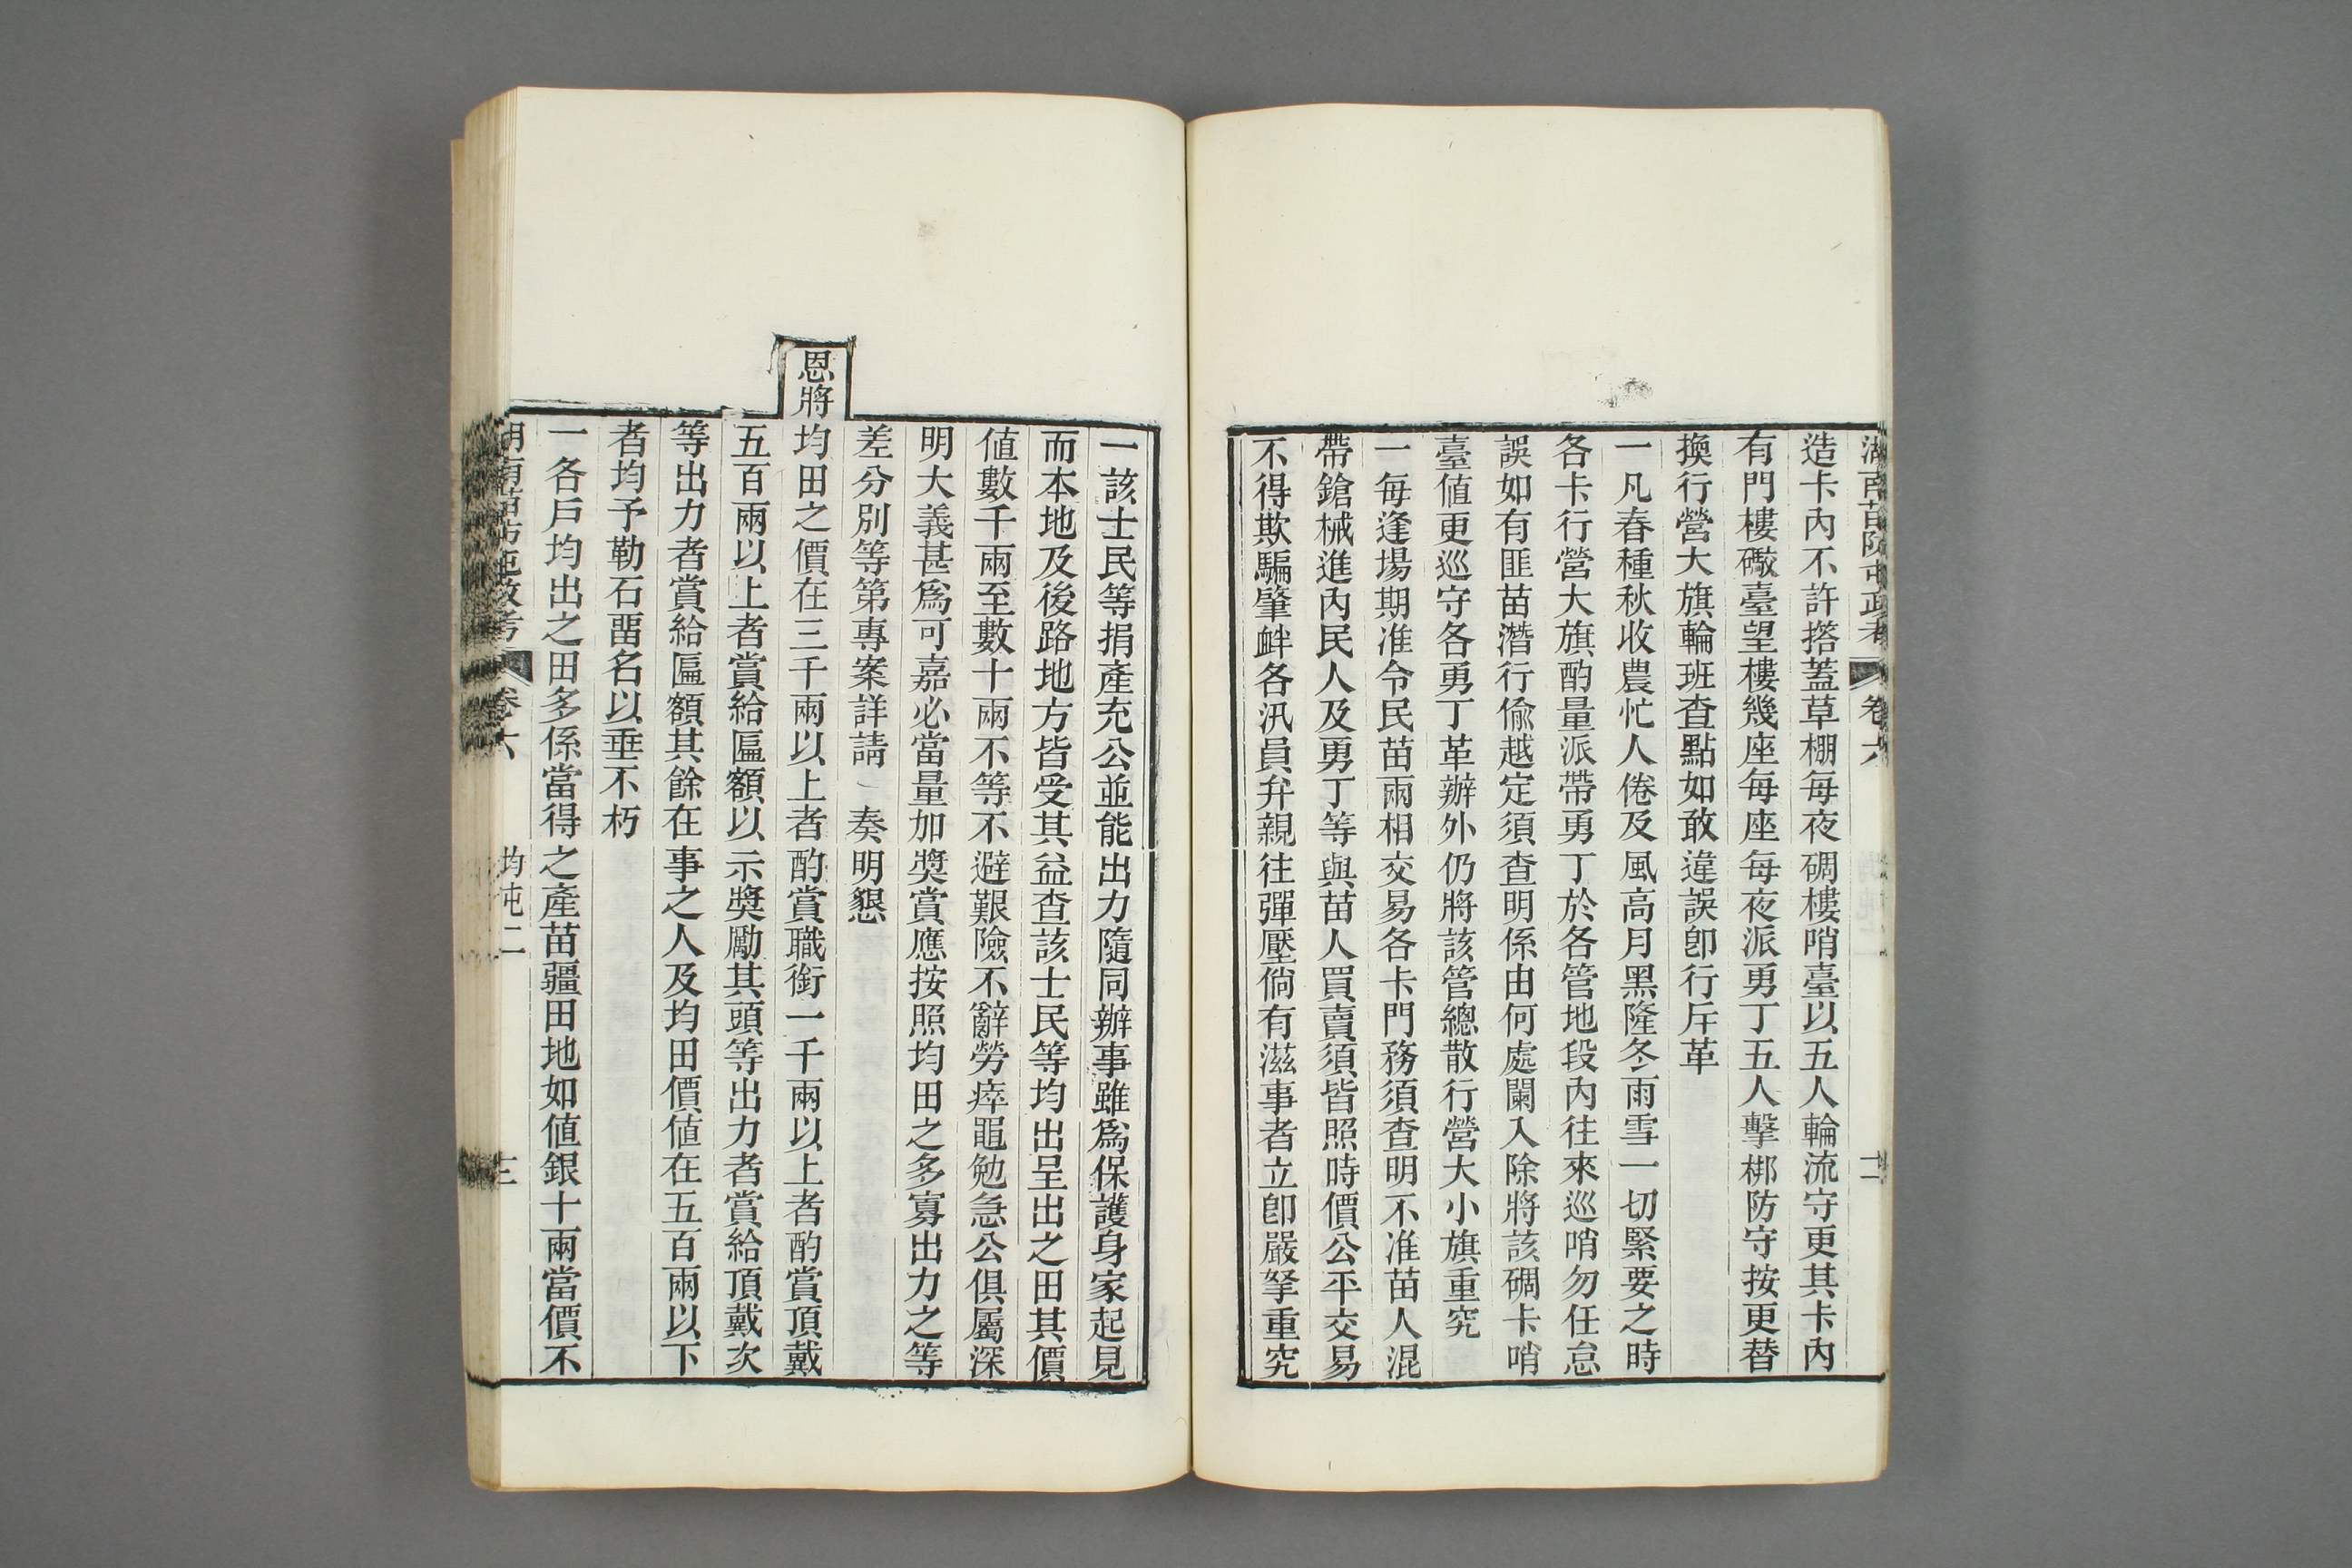 湖南苗防屯政考 卷六
造卡內不許撘蓋草棚每夜碉樓哨臺以五人輪流守更其卡內
有門樓礮臺望樓幾座每座每夜派勇丁五人擊梆防守按更替
換行營大旗輪班查點如敢違誤卽行斥革
一凡春種秋收農忙人倦及風高月黑隆冬雨雪一切緊要之時
各卡行營大旗酌量派帶勇丁於各管地段內往來巡哨勿任怠
誤如有匪苗潛行偷越定須查明係由何處闌入除將該碉卡哨
臺值更巡守各勇丁革辦外仍將該管總散行營大小旗重究
一每逢場期准令民苗兩相交易各卡門務須查明不准苗人混
帶鎗械進內民人及勇丁等與苗人買賣須皆照時價公平交易
不得欺騙肇衅各汛員弁親往彈壓倘有滋事者立卽嚴拏重究
一該士民等捐產充公並能出力隨同辦事雖爲保護身家起見
而本地及後路地方皆受其益查該士民等均出呈出之田其價
值數千兩至數十兩不等不避艱險不辭勞瘁黽勉急公俱屬深
明大義甚爲可嘉必當量加獎賞應按照均田之多寡出力之等
差分別等第專案詳請 奏明懇
恩將均田之價在三千兩以上者酌賞職銜一千兩以上者酌賞頂戴
五百兩以上者賞給匾額以示獎勵其頭等出力者賞給頂戴次
等出力者賞給匾額其餘在事之人及均田價值在五百兩以下
者均予勒石畱名以垂不朽
一各戶均出之田多係當得之產苗疆田地如值銀十兩當價不
湖南苗防屯政考 卷六 均屯二 三